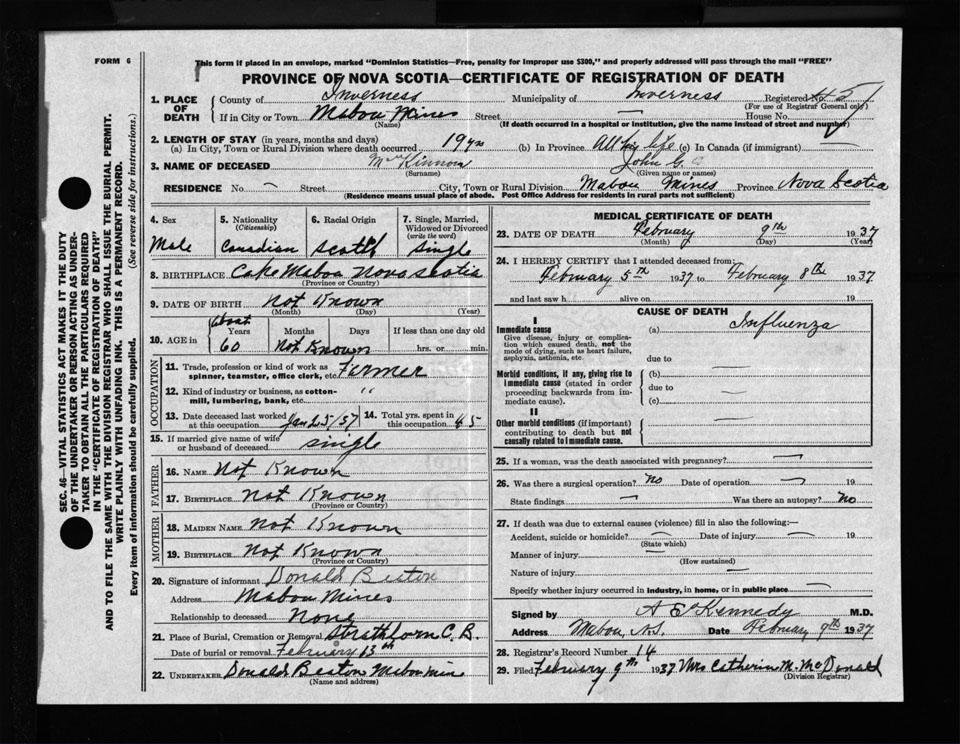 FORM 6
This form if placed in an envelope, marked "Dominion Statistics—Free, penalty for improper use $300," and properly addressed will pass through the mail "FREE"
PROVINCE OF NOVA SCOTIA—CERTIFICATE OF REGISTRATION OF DEATH
1. PLACE OF DEATH
County of Inverness Municipality of Inverness Registered No.
(For use of Registrar General only)
If in City or Town Mabou Mines Street — House No.
(Name) (If death occurred in a hospital or institution, give the name instead of street and number)
2. LENGTH OF STAY (in years, months and days)
(a) In City, Town or Rural Division where death occurred 19 yrs (b) In Province All his life (c) In Canada (if immigrant) —
3. NAME OF DECEASED McKinnon John G.
(Surname) (Given name or names)
RESIDENCE No. — Street City, Town or Rural Division Mabou Mines Province Nova Scotia
(Residence means usual place of abode. Post Office Address for residents in rural parts not sufficient)
SEC. 46—VITAL STATISTICS ACT MAKES IT THE DUTY
OF THE UNDERTAKER OR PERSON ACTING AS UNDER-
TAKER TO OBTAIN ALL THE PARTICULARS REQUIRED
IN THE "CERTIFICATE OF REGISTRATION OF DEATH"
AND TO FILE THE SAME WITH THE DIVISION REGISTRAR WHO SHALL ISSUE THE BURIAL PERMIT.
WRITE PLAINLY WITH UNFADING INK. THIS IS A PERMANENT RECORD.
Every item of information should be carefully supplied. (See reverse side for instructions.)
4. Sex
Male
5. Nationality
(Citizenship)
Canadian
6. Racial Origin
Scotch
7. Single, Married,
Widowed or Divorced
(write the word)
Single
8. BIRTHPLACE Cape Mabou Nova Scotia
(Province or Country)
9. DATE OF BIRTH Not Known
(Month) (Day) (Year)
10. AGE in
About
Years
60
Months Days
Not Known
If less than one day old
hrs. or min.
OCCUPATION
11. Trade, profession or kind of work as
spinner, teamster, office clerk, etc. Farmer
12. Kind of industry or business, as cotton-
mill, lumbering, bank, etc. "
13. Date deceased last worked
at this occupation Jan 25/37
14. Total yrs. spent in
this occupation 45
15. If married give name of wife
or husband of deceased Single
FATHER
16. NAME Not Known
17. BIRTHPLACE Not Known
(Province or Country)
MOTHER
18. MAIDEN NAME Not Known
19. BIRTHPLACE Not Known
(Province or Country)
20. Signature of informant Donald Beaton
Address Mabou Mines
Relationship to deceased None
21. Place of Burial, Cremation or Removal Strathlorn C.B.
Date of burial or removal February 13th
22. UNDERTAKER Donald Beaton Mabou Mine
(Name and address)
MEDICAL CERTIFICATE OF DEATH
23. DATE OF DEATH February 9th 1937
(Month) (Day) (Year)
24. I HEREBY CERTIFY that I attended deceased from:
February 5th 1937 to February 8th 1937
and last saw h alive on 19
CAUSE OF DEATH
I
Immediate cause
Give disease, injury or complica-
tion which caused death, not the
mode of dying, such as heart failure,
asphyxia, asthenia, etc.
(a) Influenza
due to —
Morbid conditions, if any, giving rise to
immediate cause (stated in order
proceeding backwards from im-
mediate cause).
(b) —
due to —
(c) —
II
Other morbid conditions (if important)
contributing to death but not
causally related to immediate cause.
25. If a woman, was the death associated with pregnancy? —
26. Was there a surgical operation? No Date of operation — 19
State findings — Was there an autopsy? No
27. If death was due to external causes (violence) fill in also the following:—
Accident, suicide or homicide? — Date of injury — 19
(State which)
Manner of injury —
(How sustained)
Nature of injury —
Specify whether injury occurred in industry, in home, or in public place —
Signed by A E Kennedy M.D.
Address Mabou, N.S. Date February 9th 1937
28. Registrar's Record Number 14
29. Filed February 9th 1937 Mrs Catherin M. McDonald
(Division Registrar)